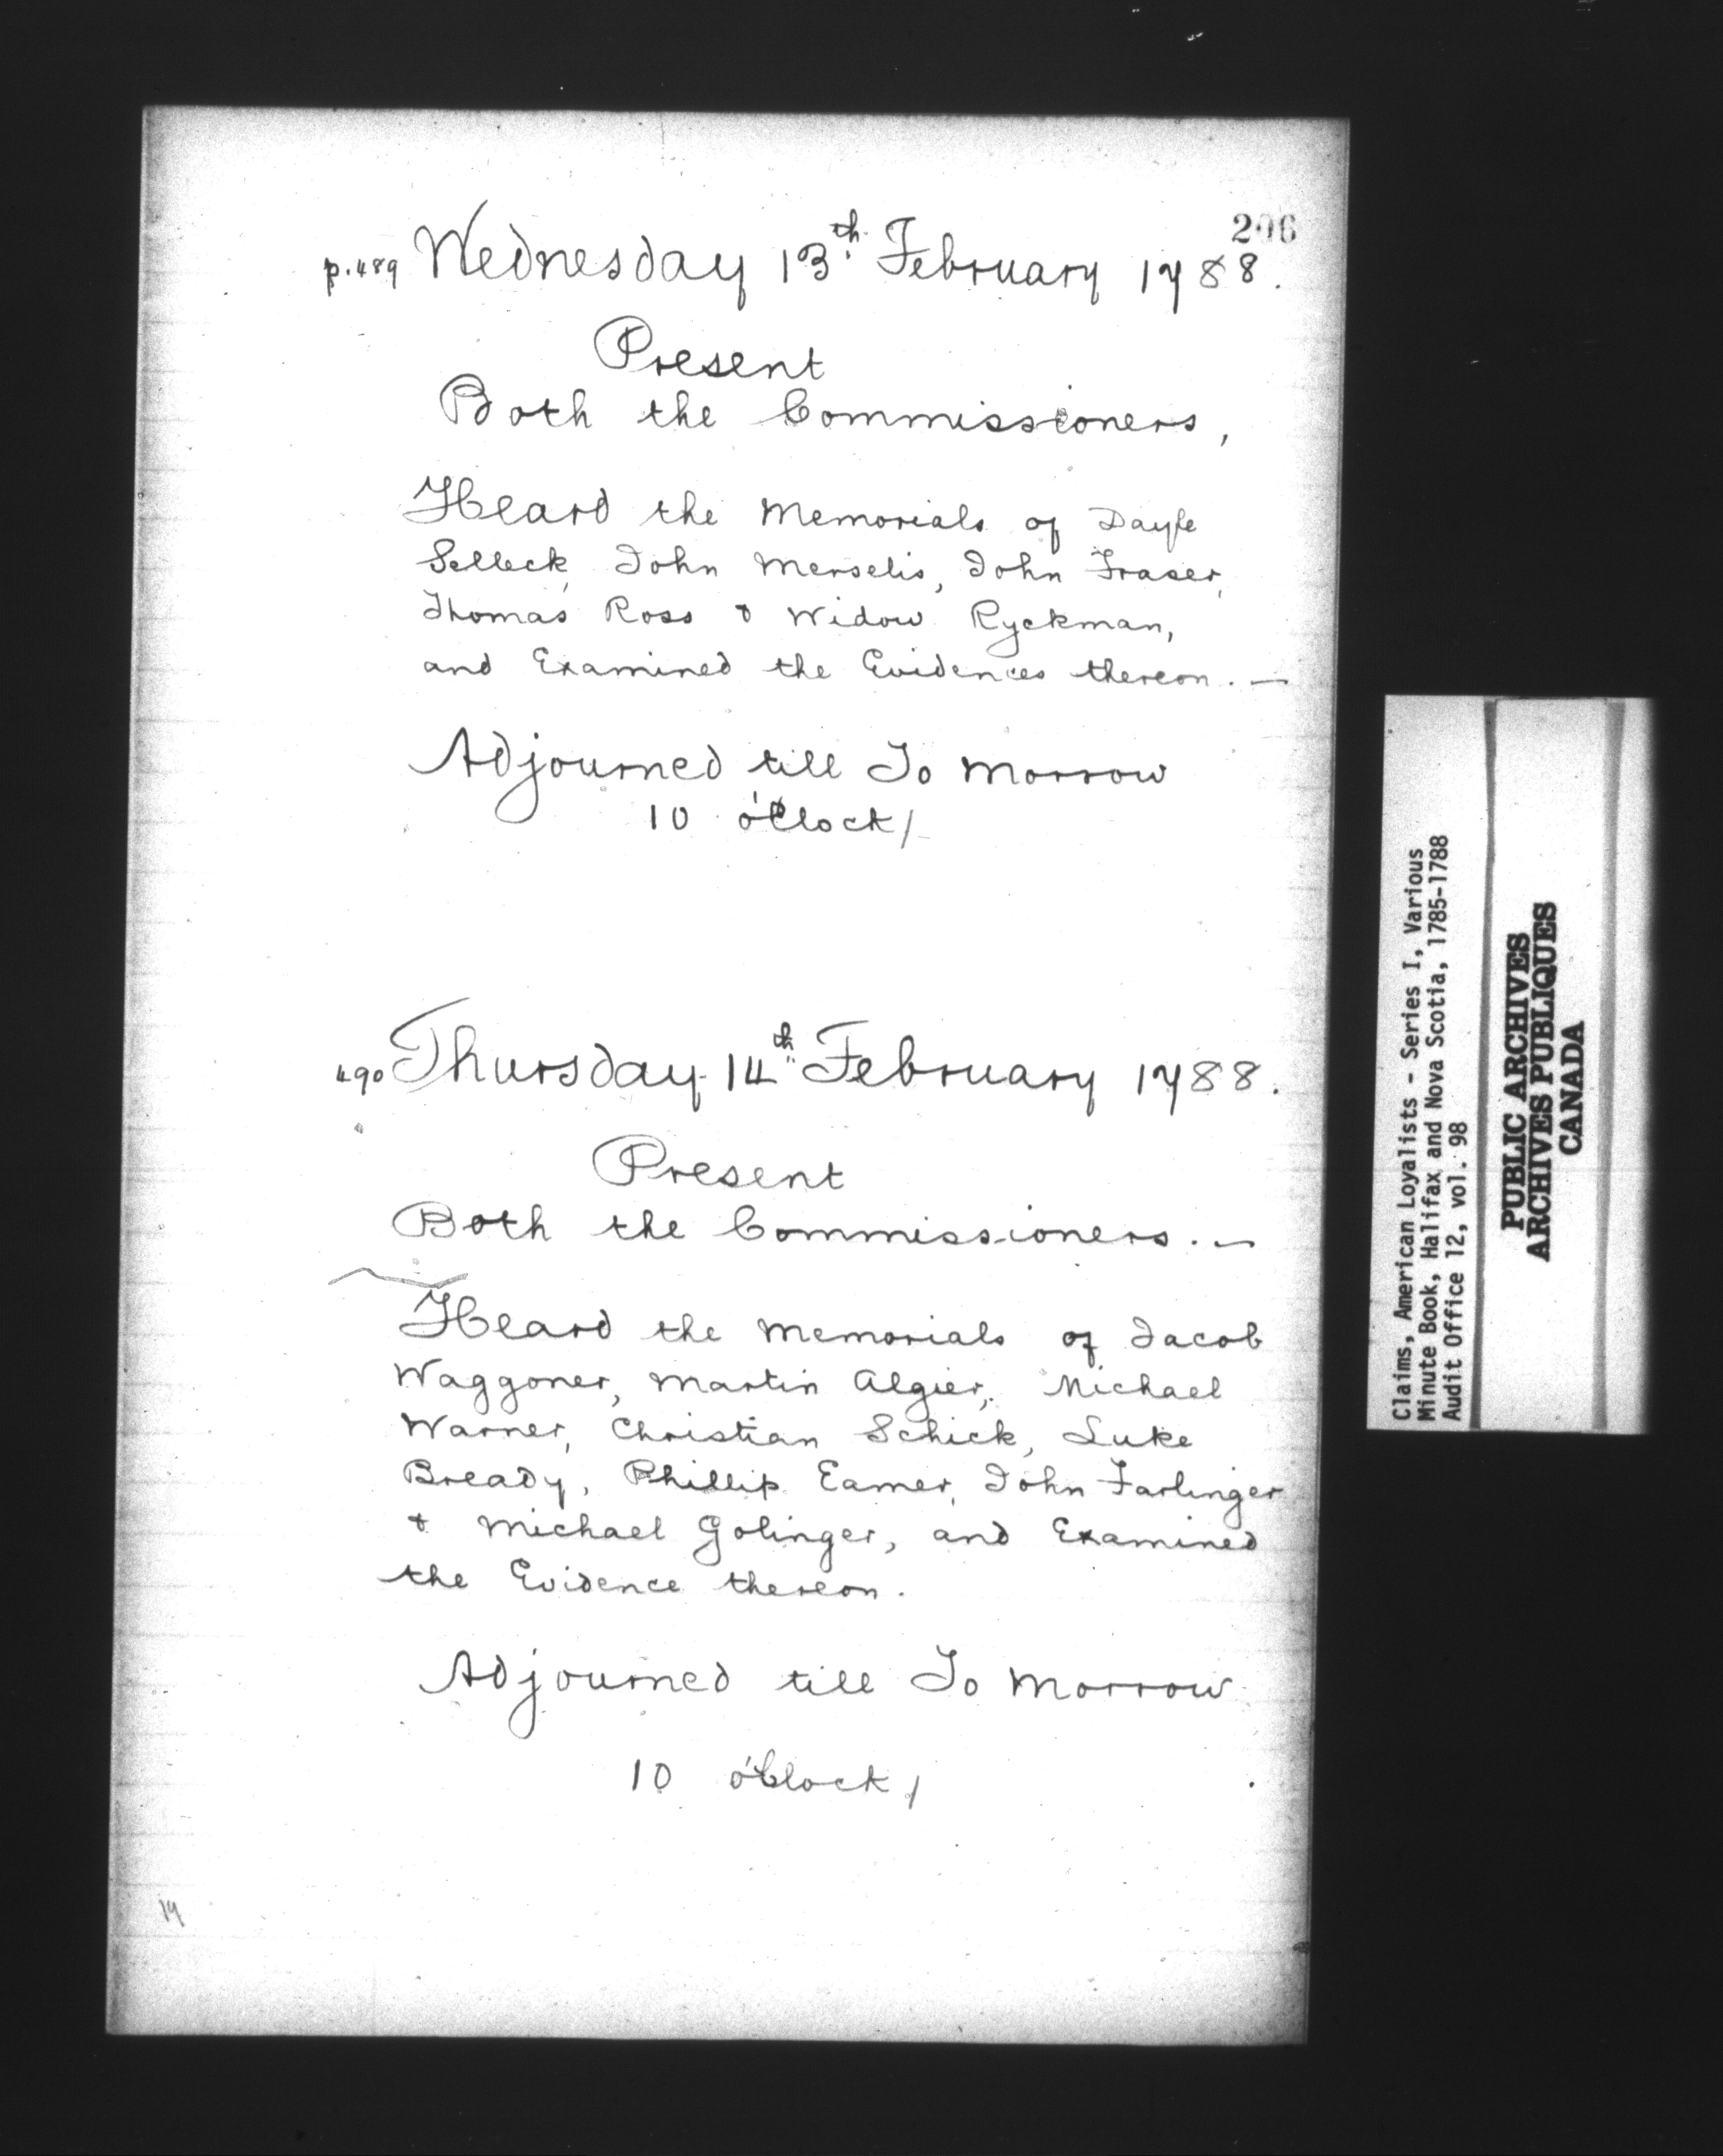 206
p.489 Wednesday 13th. February 1788.
Present
Both the Commissioners,
Heard the Memorials of Dayle
Selleck, John Merselis, John Fraser,
Thomas Ross & Widow Ryckman,
and Examined the Evidences thereon. —
Adjourned till To Morrow
10 o'Clock/
490 Thursday 14th February 1788.
Present
Both the Commissioners. —
Heard the Memorials of Jacob
Waggoner, Martin Algier, Michael
Warner, Christian Schick, Luke
Bready, Phillip Eamer, John Farlinger
& Michael Golinger, and Examined
the Evidence thereon.
Adjourned till To Morrow
10 o'Clock/
19
Claims, American Loyalists - Series I, Various
Minute Book, Halifax and Nova Scotia, 1785-1788
Audit Office 12, vol. 98
PUBLIC ARCHIVES
ARCHIVES PUBLIQUES
CANADA